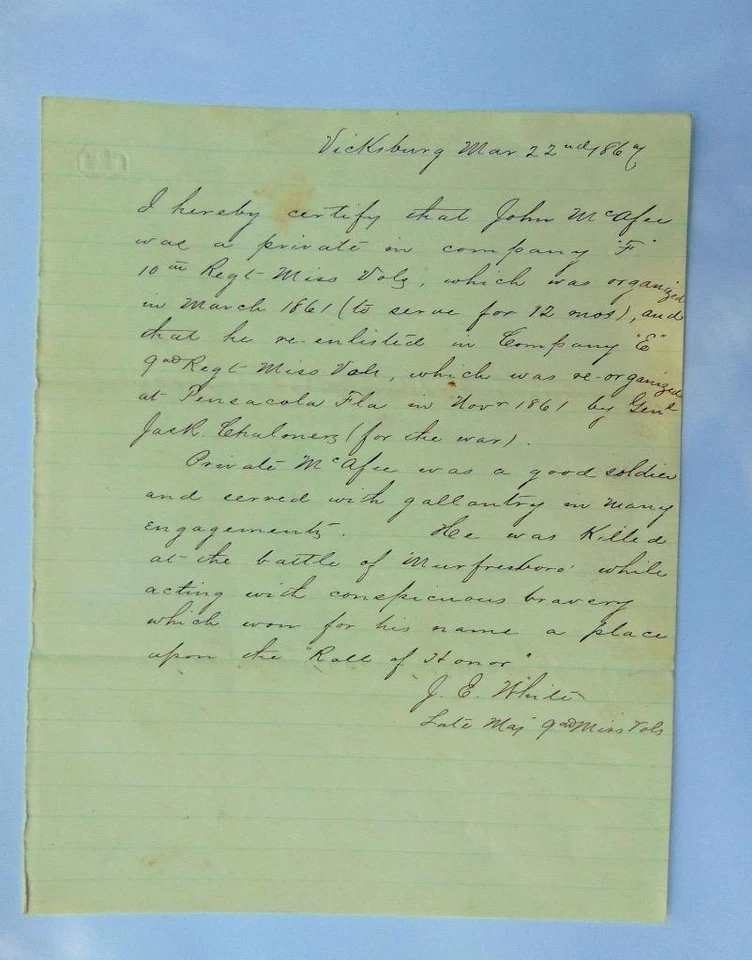 Vicksburg Mar 22nd 1867
I hereby certify that John McAfee
was a private in company "F"
10th Regt Miss Vols, which was organized
in March 1861 (to serve for 12 mos), and
that he re-enlisted in Company "E"
9th Regt Miss Vols, which was re-organized
at Pensacola Fla in Novr 1861 by Genl
Jack. Chalmers (for the war).
Private McAfee was a good soldier
and served with gallantry in many
engagements. He was Killed
at the battle of Murfresboro' while
acting with conspicuous bravery
which won for his name a place
upon the "Roll of Honor"
J. E. White
Late Maj 9th Miss Vols